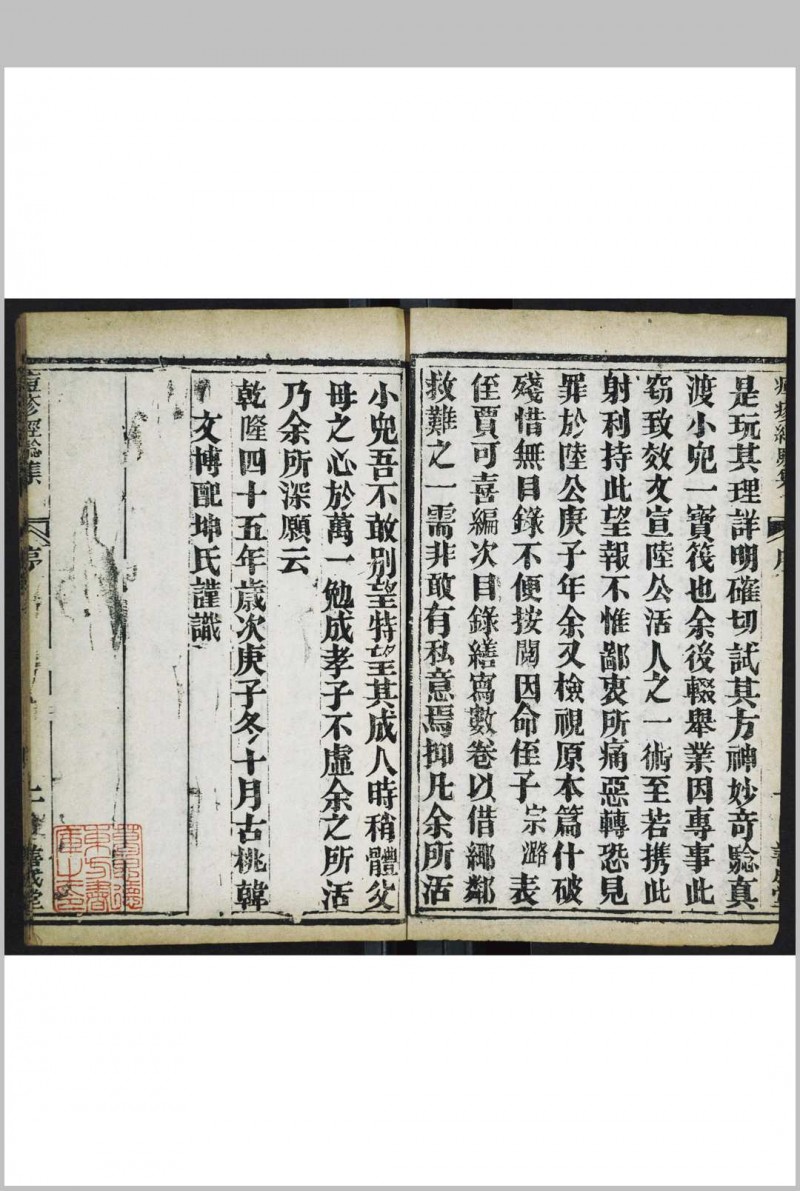 是玩其理詳明確切試其方神妙奇騐真
渡小兒一寶筏也余後輟舉業因專事此
窃致效文宣陸公活人之一術至若携此
射利持此望報不惟鄙衷所痛惡轉恐見
罪於陸公庚子年余又檢視原本篇什破
殘惜無目錄不便按閱因命侄子宗潞表
侄賈可喜編次目錄繕寫數卷以借鄉鄰
救難之一需非敢有私意焉抑凡余所活
小兒吾不敢别望特望其成人時稍體父
母之心於萬一勉成孝子不虛余之所活
乃余所深願云
乾隆四十五年歲次庚子冬十月古桃韓
文博配坤氏謹識
痘疹經騐集
序
二
善成堂